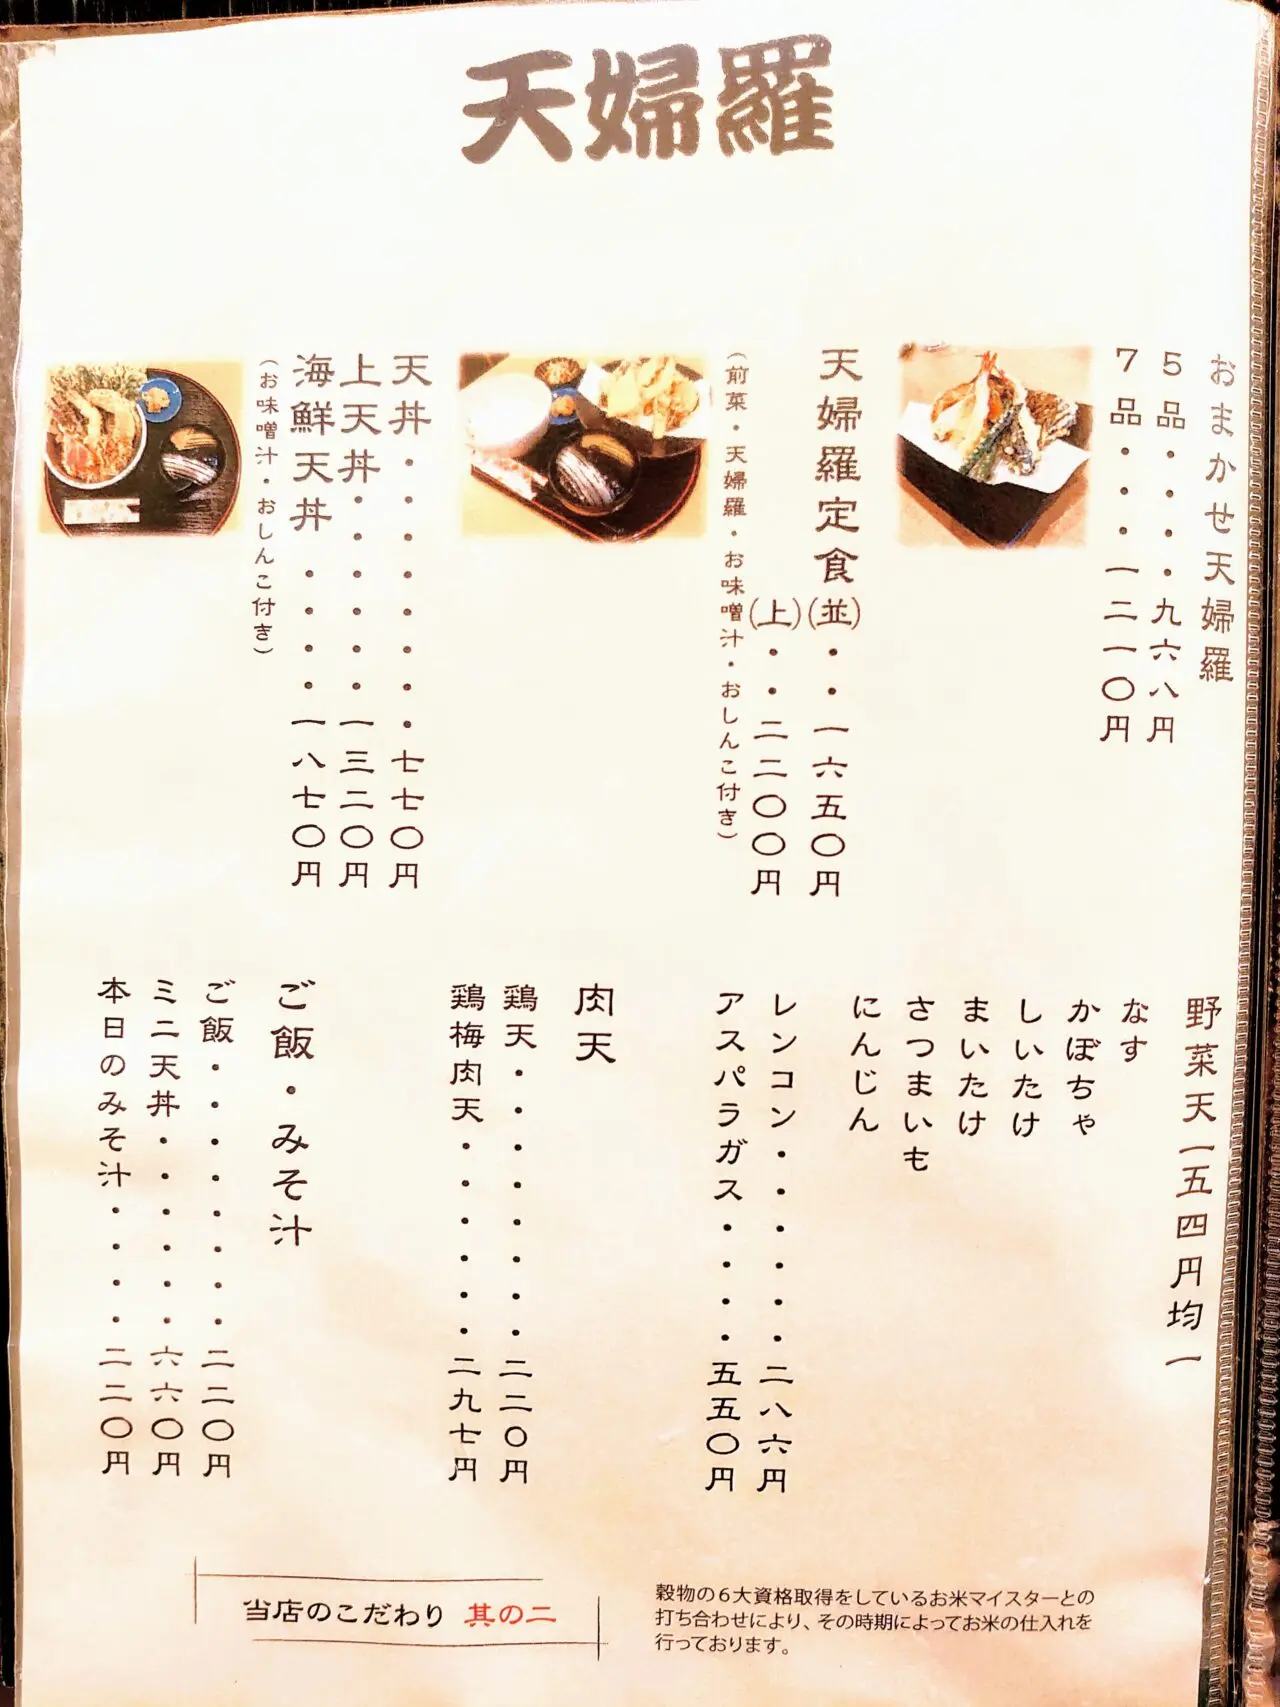 天婦羅
おまかせ天婦羅
5品・・・・九六八円
7品・・・一二一〇円
天婦羅定食(並)・・一六五〇円
(上)・・二二〇〇円
(前菜・天婦羅・お味噌汁・おしんこ付き)
天丼・・・・・・・・七七〇円
上天丼・・・・・・一三二〇円
海鮮天丼・・・・一八七〇円
(お味噌汁・おしんこ付き)
野菜天一五四円均一
なす
かぼちゃ
しいたけ
まいたけ
さつまいも
にんじん
レンコン・・・・・・二八六円
アスパラガス・・・・五五〇円
肉天
鶏天・・・・・・・・二二〇円
鶏梅肉天・・・・・・二九七円
ご飯・みそ汁
ご飯・・・・・・・・二二〇円
ミニ天丼・・・・・・六六〇円
本日のみそ汁・・・・二二〇円
当店のこだわり 其の二
穀物の6大資格取得をしているお米マイスターとの
打ち合わせにより、その時期によってお米の仕入れを
行っております。